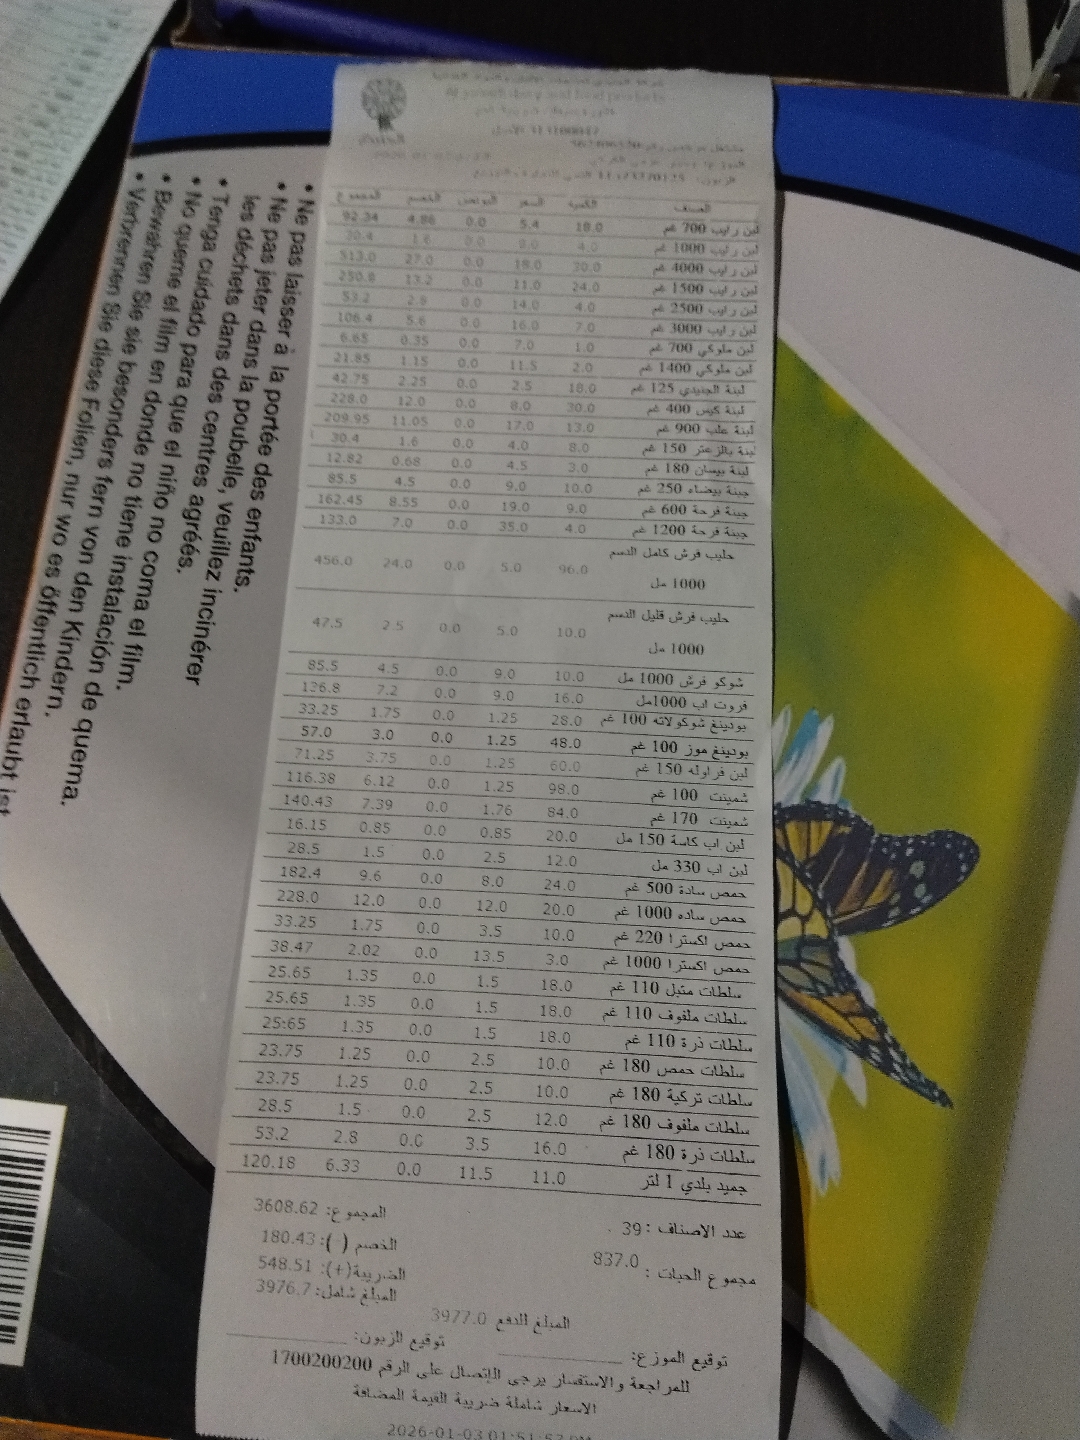 الجنيدي
الصنف الكمية السعر البونص الخصم المجموع
لبن رايب 700 غم 18.0 5.4 0.0 4.86 92.34
لبن رايب 1000 غم 4.0 8.0 0.0 1.6 30.4
لبن رايب 4000 غم 30.0 18.0 0.0 27.0 513.0
لبن رايب 1500 غم 24.0 11.0 0.0 13.2 250.8
لبن رايب 2500 غم 4.0 14.0 0.0 2.8 53.2
لبن رايب 3000 غم 7.0 16.0 0.0 5.6 106.4
لبن ملوكي 700 غم 1.0 7.0 0.0 0.35 6.65
لبن ملوكي 1400 غم 2.0 11.5 0.0 1.15 21.85
لبنة الجنيدي 125 غم 18.0 2.5 0.0 2.25 42.75
لبنة كيس 400 غم 30.0 8.0 0.0 12.0 228.0
لبنة علب 900 غم 13.0 17.0 0.0 11.05 209.95
لبنة بالزعتر 150 غم 8.0 4.0 0.0 1.6 30.4
لبنة بيسان 180 غم 3.0 4.5 0.0 0.68 12.82
جبنة بيضاء 250 غم 10.0 9.0 0.0 4.5 85.5
جبنة فرحة 600 غم 9.0 19.0 0.0 8.55 162.45
جبنة فرحة 1200 غم 4.0 35.0 0.0 7.0 133.0
حليب فرش كامل الدسم
1000 مل 96.0 5.0 0.0 24.0 456.0
حليب فرش قليل الدسم
1000 مل 10.0 5.0 0.0 2.5 47.5
شوكو فرش 1000 مل 10.0 9.0 0.0 4.5 85.5
فروت اب 1000مل 16.0 9.0 0.0 7.2 136.8
بودينغ شوكولاته 100 غم 28.0 1.25 0.0 1.75 33.25
بودينغ موز 100 غم 48.0 1.25 0.0 3.0 57.0
لبن فراوله 150 غم 60.0 1.25 0.0 3.75 71.25
شمينت 100 غم 98.0 1.25 0.0 6.12 116.38
شمينت 170 غم 84.0 1.76 0.0 7.39 140.43
لبن اب كاسة 150 مل 20.0 0.85 0.0 0.85 16.15
لبن اب 330 مل 12.0 2.5 0.0 1.5 28.5
حمص سادة 500 غم 24.0 8.0 0.0 9.6 182.4
حمص ساده 1000 غم 20.0 12.0 0.0 12.0 228.0
حمص اكسترا 220 غم 10.0 3.5 0.0 1.75 33.25
حمص اكسترا 1000 غم 3.0 13.5 0.0 2.02 38.47
سلطات متبل 110 غم 18.0 1.5 0.0 1.35 25.65
سلطات ملفوف 110 غم 18.0 1.5 0.0 1.35 25.65
سلطات ذرة 110 غم 18.0 1.5 0.0 1.35 25.65
سلطات حمص 180 غم 10.0 2.5 0.0 1.25 23.75
سلطات تركية 180 غم 10.0 2.5 0.0 1.25 23.75
سلطات ملفوف 180 غم 12.0 2.5 0.0 1.5 28.5
سلطات ذرة 180 غم 16.0 3.5 0.0 2.8 53.2
جميد بلدي 1 لتر 11.0 11.5 0.0 6.33 120.18
عدد الاصناف : 39
المجموع: 3608.62
مجموع الحبات : 837.0
الخصم (-): 180.43
الضريبة(+): 548.51
المبلغ شامل: 3976.7
المبلغ للدفع 3977.0
توقيع الموزع:
توقيع الزبون:
للمراجعة والاستفسار يرجى الإتصال على الرقم 1700200200
الاسعار شاملة ضريبة القيمة المضافة
2026-01-03 01:51:52 PM
• Ne pas laisser à la portée des enfants.
• Ne pas jeter dans la poubelle, veuillez incinérer
les déchets dans des centres agréés.
• Tenga cuidado para que el niño no coma el film.
• No queme el film en donde no tiene instalación de quema.
• Bewahren Sie sie besonders fern von den Kindern.
• Verbrennen Sie diese Folien, nur wo es öffentlich erlaubt ist